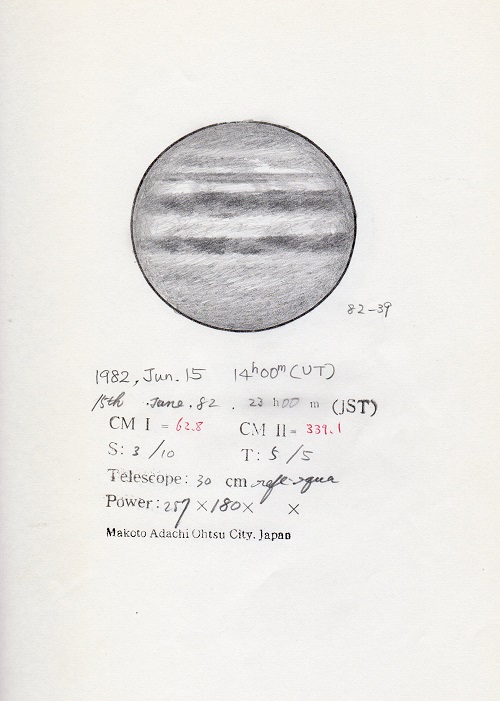 82-39
1982, Jun. 15 14h00m (UT)
15th June. 82. 23 h00 m (JST)
CM I = 62.8 CM II = 339.1
S: 3/10 T: 5/5
Telescope: 30 cm
Power: 257 ×180× ×
Makoto Adachi Ohtsu City. Japan